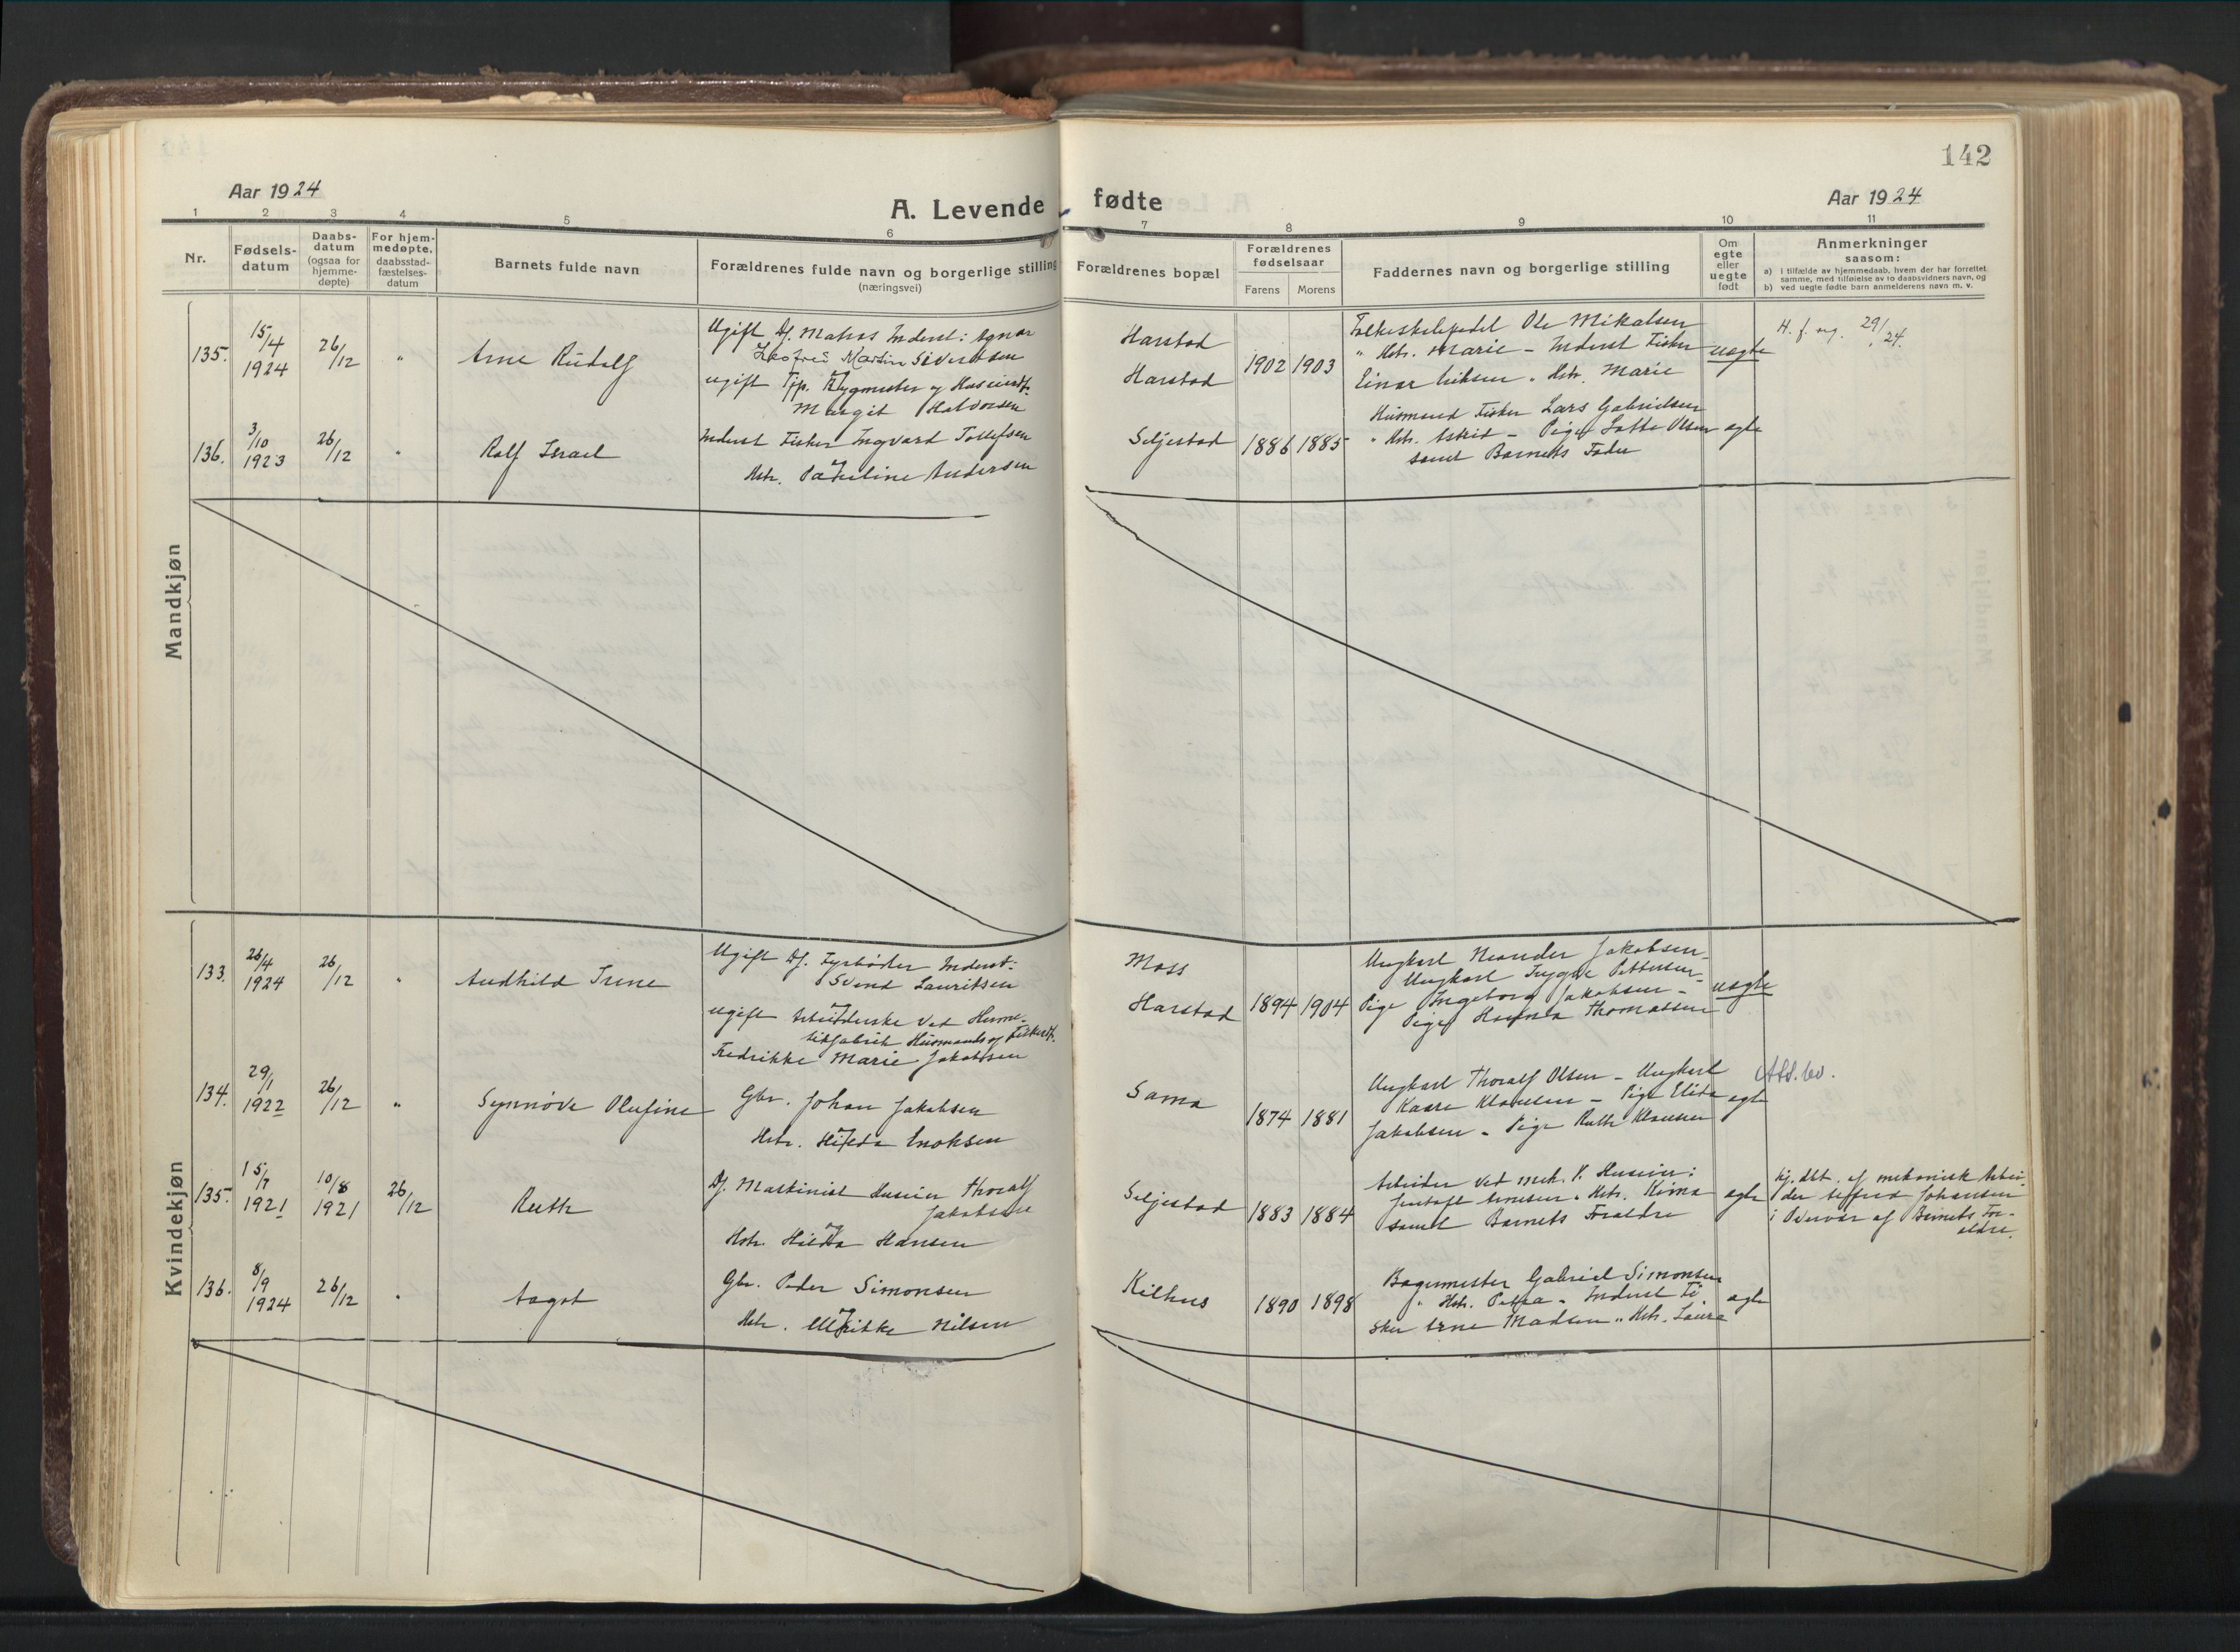 142
Aar 1924
A. Levende fødte
Aar 1924
1 2 3 4 5 6 7 8 9 10 11
Nr.
Fødsels-
datum
Daabs-
datum
(ogsaa for
hjemme-
døpte)
For hjem-
medøpte,
daabsstad-
fæstelses-
datum
Barnets fulde navn
Forældrenes fulde navn og borgerlige stilling
(næringsvei)
Forældrenes bopæl
Forældrenes
fødselsaar
Farens Morens
Faddernes navn og borgerlige stilling
Om
egte
eller
uegte
født
Anmerkninger
saasom:
a) i tilfælde av hjemmedaab, hvem der har forrettet
samme, med tilføielse av to daabsvidners navn, og
b) ved uegte fødte barn anmelderens navn m. v.
Mandkjøn
135.
15/4
1924
26/12
"
Arne Rudolf
Ugift Dj. Matros Inderst: Agnar
Martin Sivertsen
ugift Tjp.
Margit Halvorsen
Harstad
Harstad
1902 1903
Ole Mikalsen
" Hstr. Marie - Inderst Fisker
Einar Eriksen " Hstr. Marie
uegte
H. f. 29/ 24.
136.
3/10
1923
26/12
"
Rolf Israel
Inderst Fisker Ingvard Tollefsen
Hstr. Andersen
Seljestad
1886 1885
Husmand Fisker Lars Gabrielsen
" Hstr. Astrid - Pige Lotte Olsen
samt Barnets Fader
egte
Kvindekjøn
133.
26/4
1924
26/12
"
Audhild Irene
Ugift Dj. Fyrbøder Inderst:
Svend Lauritsen
ugift Arbeiderske ved Herme-
tikfabrik Husmands og Fiskerdt.
Fredrikke Marie Jakobsen
Moss
Harstad
1894 1904
Ungkarl Neander Jakobsen -
Ungkarl Trygve Pettersen -
Pige Ingeborg Jakobsen -
Pige Hanna Thomassen
uegte
134.
29/1
1922
26/12
"
Synnøve Olufine
Gbr. Johan Jakobsen
Hstr. Enoksen
Sama
1874 1881
Ungkarl Thoralf Olsen - Ungkarl
Kaare Klausen - Pige Elida
Jakobsen - Pige Ruth Klausen
egte
135.
15/7
1921
10/8
1921
26/12
Ruth
Dj. Maskinist Huseier Thoralf
Jakobsen
Hstr. Hilda Hansen
Seljestad
1883 1884
Arbeider ved mek. V. Huseier:
Jentoft Arnesen " Hstr.
samt Barnets Forældre
egte
hj. dbt. af mekanisk Arbei-
der Johansen
i Overvær af Barnets For-
ældre.
136.
8/9
1924
26/12
"
Aagot
Gbr. Peder Simonsen
Hstr. Ulrikke Nilsen
Kilhus
1890 1898
Bagermester Gabriel Simonsen
" Hstr. Petra - Inderst Fi
sker Arne Madsen " Hstr. Laura
egte